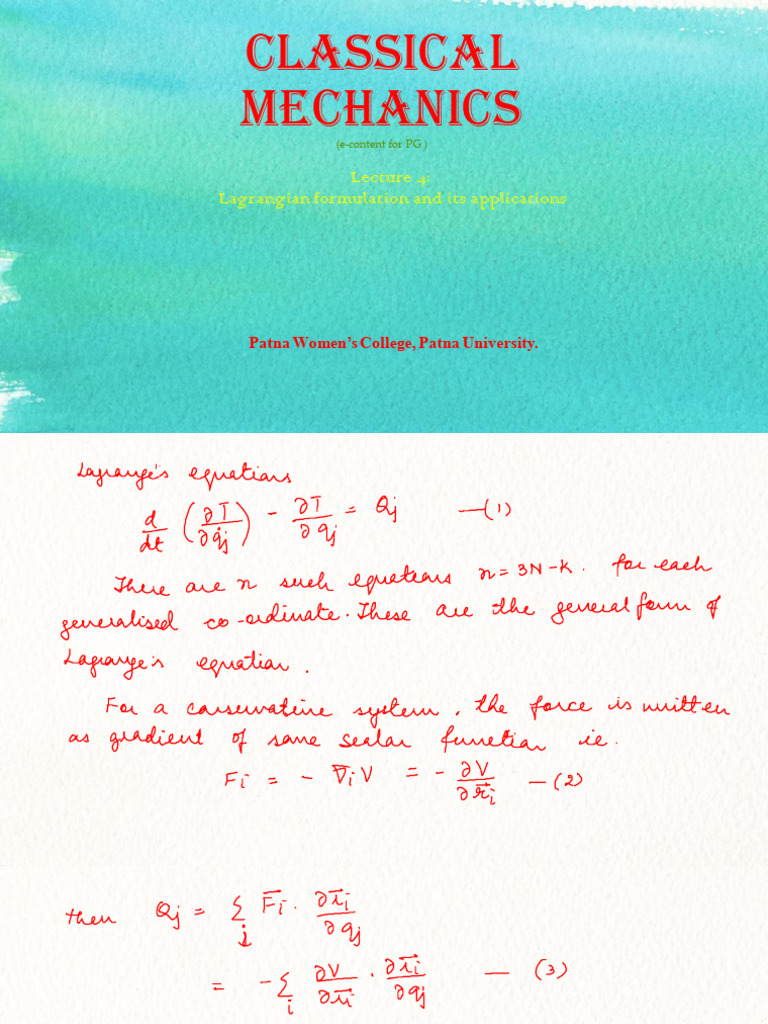 CLASSICAL
MECHANICS
(e-content for PG )
Lecture 4:
Lagrangian formulation and its applications
Patna Women's College, Patna University.
Lagrange's equations
d/dt (∂T/∂q̇j) - ∂T/∂qj = Qj —(1)
There are n such equations n = 3N-K. for each
generalised co-ordinate. These are the general form of
Lagrange's equation.
For a conservative system, the force is written
as gradient of some scalar function ie.
Fi = - ∇̄iV = - ∂V/∂r⃗i —(2)
then Qj = Σj F⃗i · ∂r⃗i/∂qj
= -Σi ∂V/∂r⃗i · ∂r⃗i/∂qj — (3)